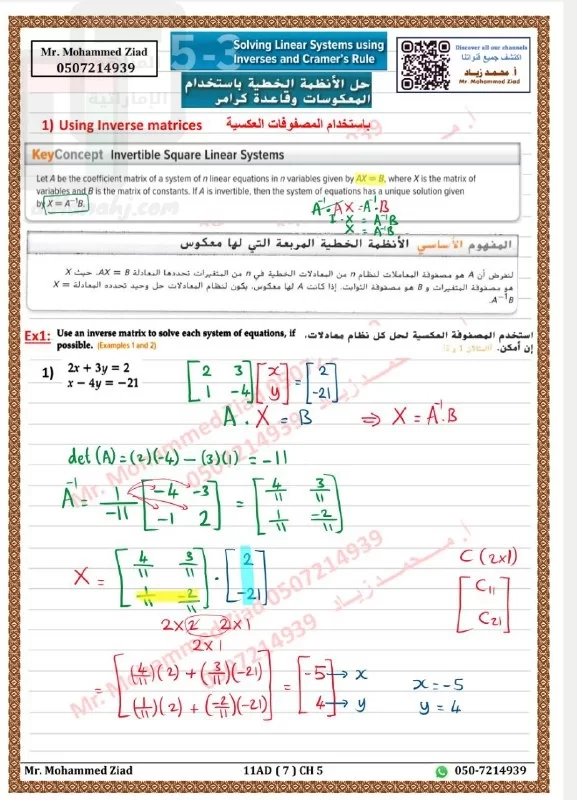 Mr. Mohammed Ziad
0507214939
5-3
Solving Linear Systems using
Inverses and Cramer's Rule
حل الأنظمة الخطية باستخدام
المعكوسات وقاعدة كرامر
Discover all our channels
اكتشف جميع قنواتنا
أ. محمد زياد
Mr Mohammed Ziad
1) Using Inverse matrices باستخدام المصفوفات العكسية
KeyConcept Invertible Square Linear Systems
Let A be the coefficient matrix of a system of n linear equations in n variables given by AX = B, where X is the matrix of
variables and B is the matrix of constants. If A is invertible, then the system of equations has a unique solution given
by X = A⁻¹B.
A⁻¹·AX = A⁻¹·B
I·X = A⁻¹B
X = A⁻¹B
المفهوم الأساسي الأنظمة الخطية المربعة التي لها معكوس
لنفرض أن A هو مصفوفة المعاملات لنظام n من المعادلات الخطية في n من المتغيرات تحددها المعادلة AX = B. حيث X
هو مصفوفة المتغيرات و B هو مصفوفة الثوابت. إذا كانت A لها معكوس، يكون لنظام المعادلات حل وحيد تحدده المعادلة X =
A⁻¹B.
Ex1: Use an inverse matrix to solve each system of equations, if
possible. (Examples 1 and 2)
استخدم المصفوفة العكسية لحل كل نظام معادلات،
إن أمكن.
1) 2x + 3y = 2
x − 4y = −21
[2 3; 1 -4] [x; y] = [2; -21]
A . X = B ⇒ X = A⁻¹.B
det(A) = (2)(-4) - (3)(1) = -11
A⁻¹ = 1/-11 [-4 -3; -1 2] = [4/11 3/11; 1/11 -2/11]
X = [4/11 3/11; 1/11 -2/11] · [2; -21]
2x2 2x1
2x1
C (2x1)
[C11; C21]
= [(4/11)(2) + (3/11)(-21); (1/11)(2) + (-2/11)(-21)] = [-5; 4] → x → y
x = -5
y = 4
Mr. Mohammed Ziad 0507214939
أ. محمد زياد
Mr. Mohammed Ziad
11AD ( 7 ) CH 5
050-7214939